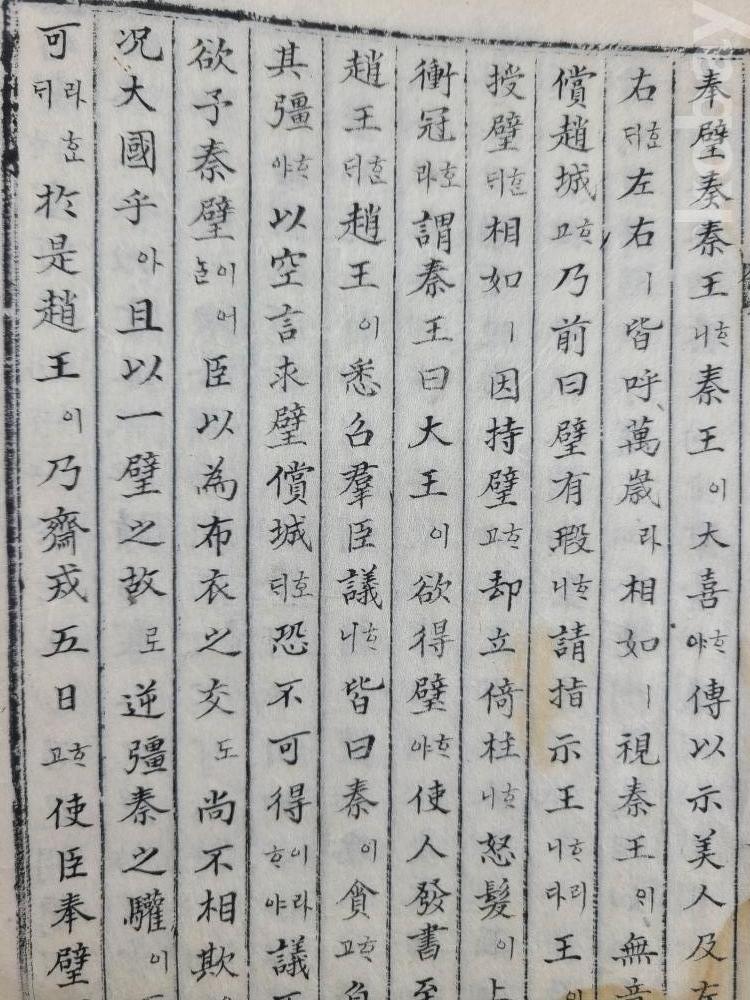 奉璧奏秦王ᄒᆞ니秦王이大喜ᄒᆞ야傳以示美人及左
右호ᄃᆡ左右ㅣ皆呼萬歲라相如ㅣ視秦王의無意
償趙城ᄒᆞ고乃前曰璧有瑕ᄒᆞ니請指示王ᄒᆞ리니다王이
授璧ᄒᆞᆫᄃᆡ相如ㅣ因持璧ᄒᆞ고却立倚柱ᄒᆞ니怒髮이上
衝冠호라謂秦王曰大王이欲得璧ᄒᆞ야使人發書至
趙王ᄒᆞᆫᄃᆡ趙王이悉召羣臣議ᄒᆞ니皆曰秦이貪ᄒᆞ고負
其彊ᄒᆞ야以空言求璧償城호ᄃᆡ恐不可得이라ᄒᆞ야議不
欲予秦璧이어ᄂᆞᆯ臣以為布衣之交도尚不相欺
况大國乎아且以一璧之故로逆彊秦之驩이不
可라호ᄃᆡ於是趙王이乃齋戒五日ᄒᆞ고使臣奉璧